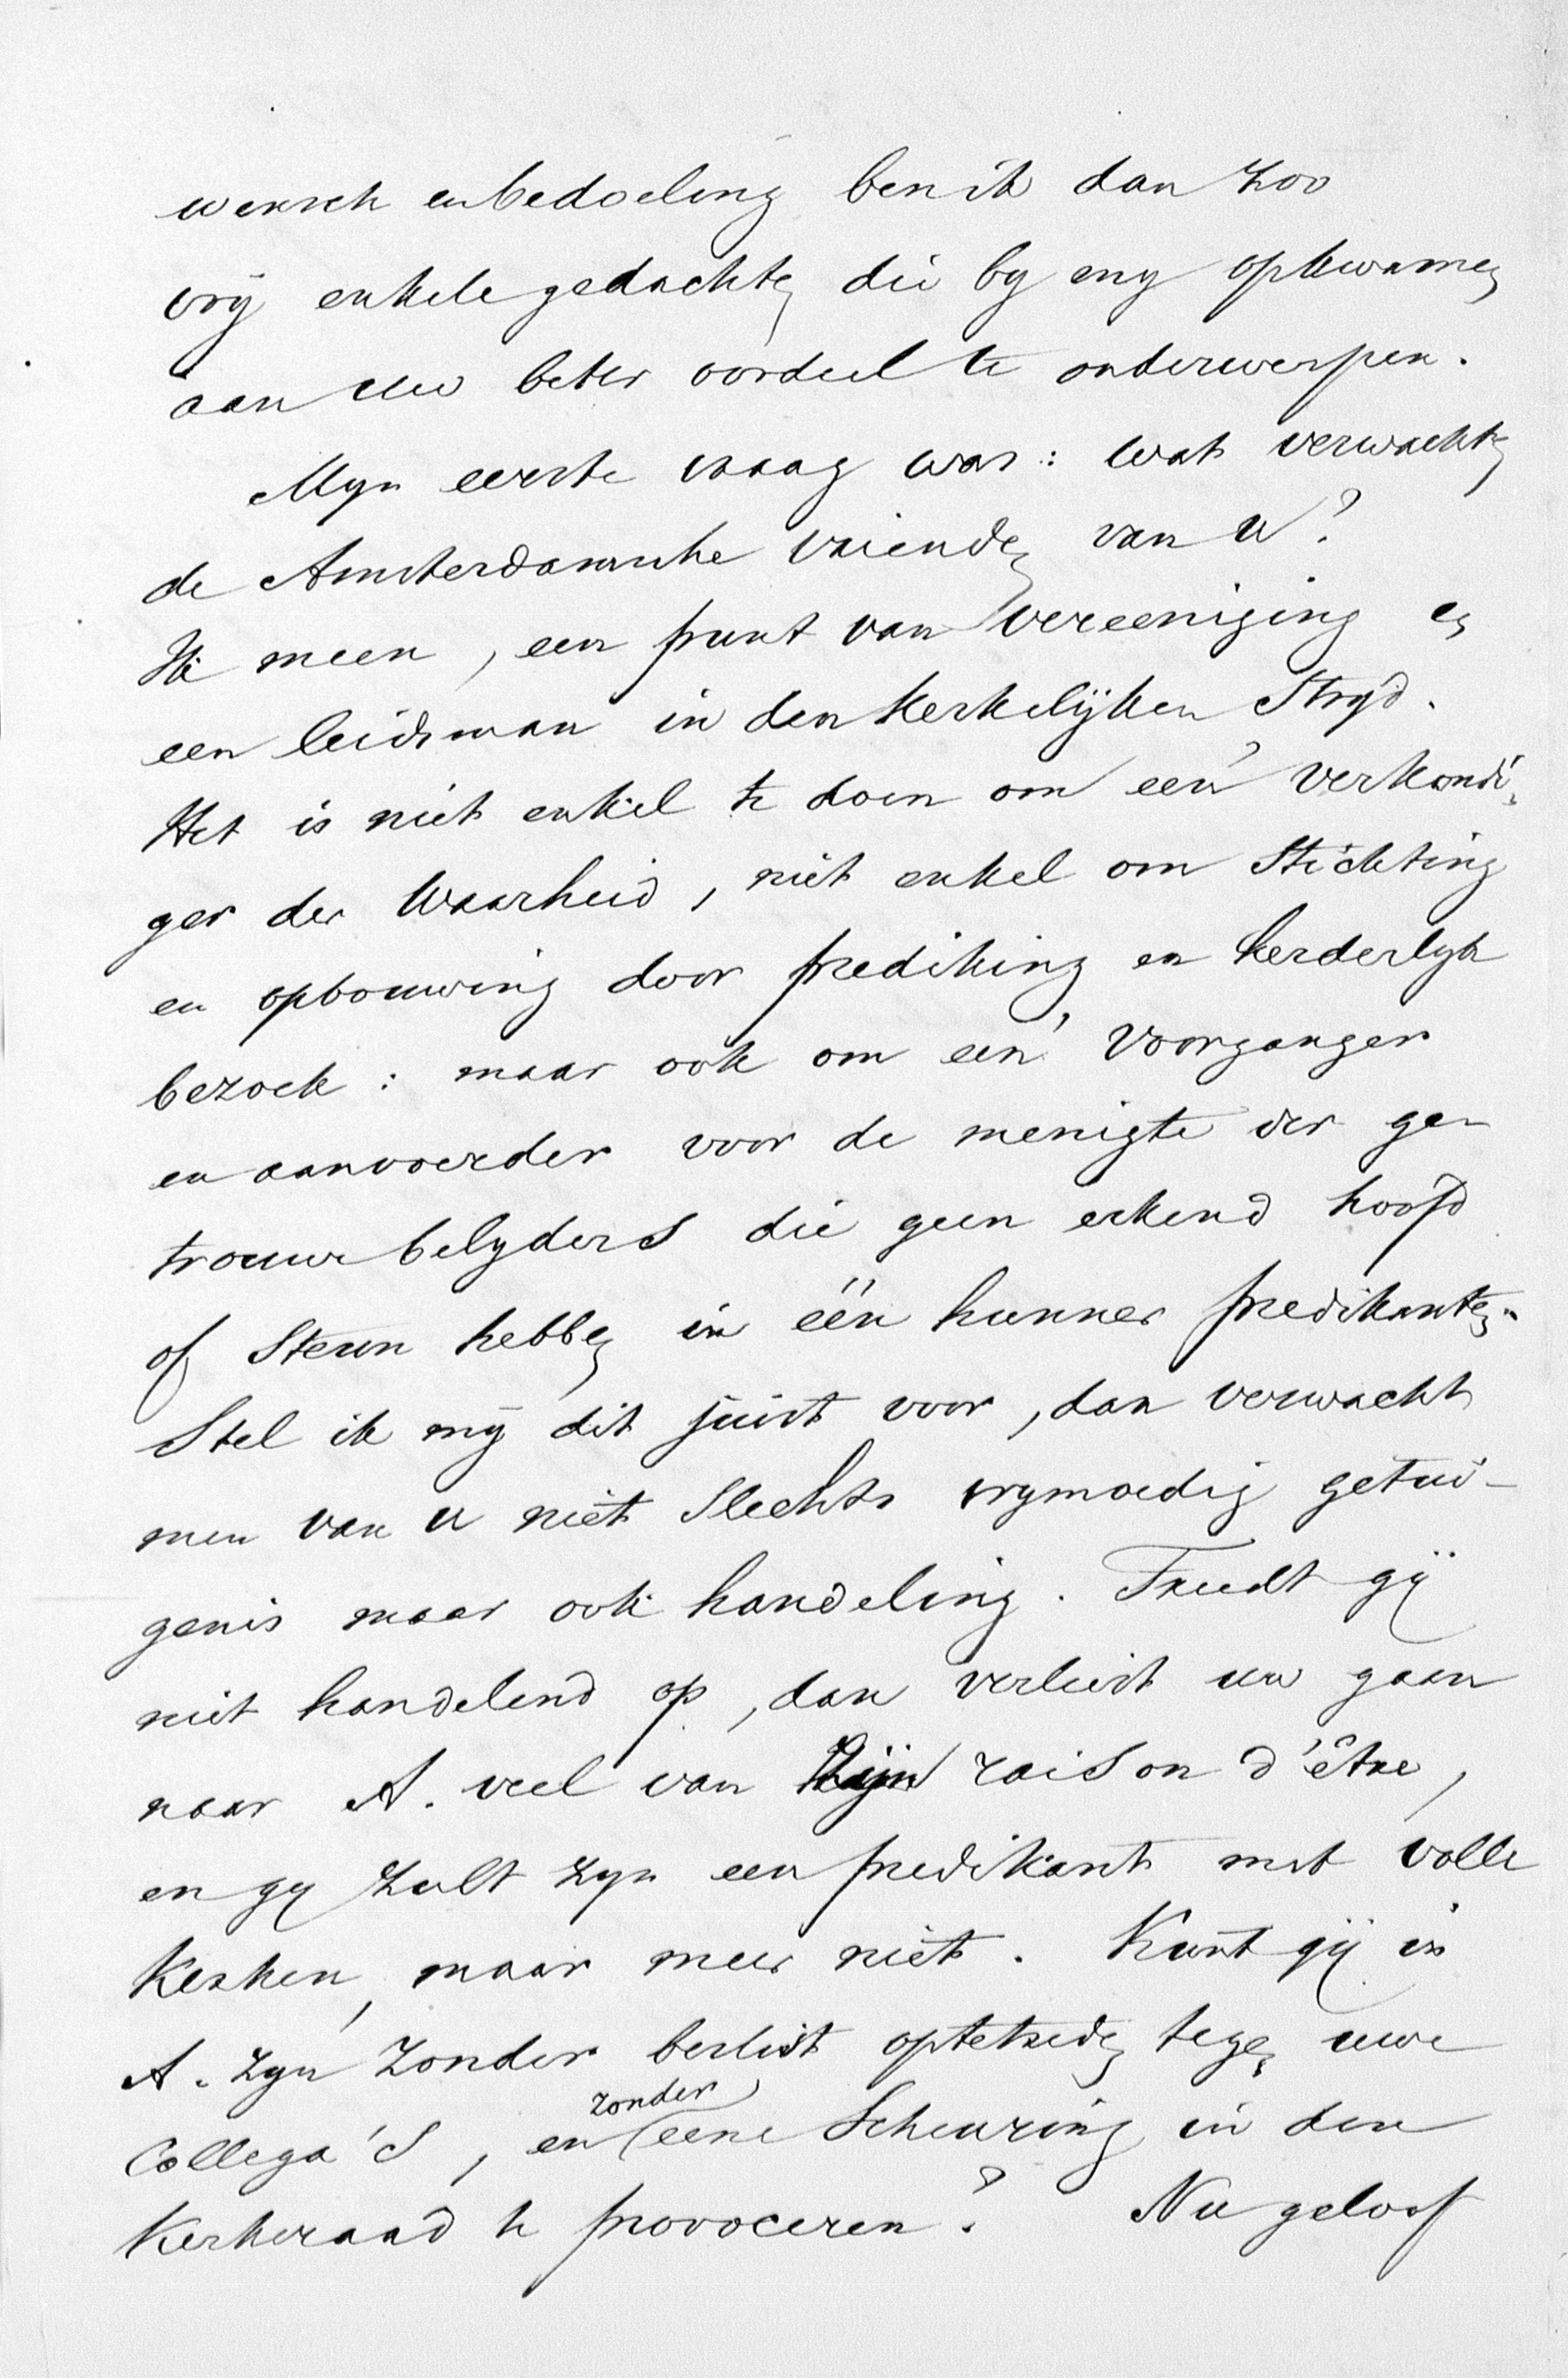 wensch en bedoeling ben ik dan zoo
vrij enkele gedachten die by my opkwamen
aan uw beter oordeel te onderwerpen.
Myn eerste vraag was: wat verwachten
de Amsterdamsche vrienden van U?
Ik meen, een punt van vereeniging en
een leidsman in den kerkelijken Stryd.
Het is niet enkel te doen om een' verkondi-
ger der Waarheid, niet enkel om Stichting
en opbouwing door prediking en herderlyk
bezoek: maar ook om een' Voorganger
en aanvoerder voor de menigte der ge-
trouwe belyders die geen erkend hoofd
of Steun hebben in één hunner predikanten.
Stel ik mij dit juist voor, dan verwacht
men van U niet Slechts vrymoedig getui-
genis maar ook handeling. Treedt gij
niet handelend op, dan verliest uw gaan
naar A. veel van zijn raison d'être,
en gy zult zyn een predikant met volle
Kerken, maar meer niet. Kunt gij in
A. zyn zonder beslist optetreden tegen uwe
Collega's, en zonder eene Scheuring in den
Kerkeraad te provoceren? Nu geloof